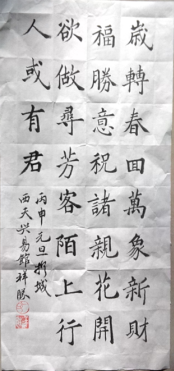 歲轉春回萬象新財
福勝意祝諸親花開
欲做尋芳客陌上行
人或有君
丙申元旦彬城
西天興易錦祥勝